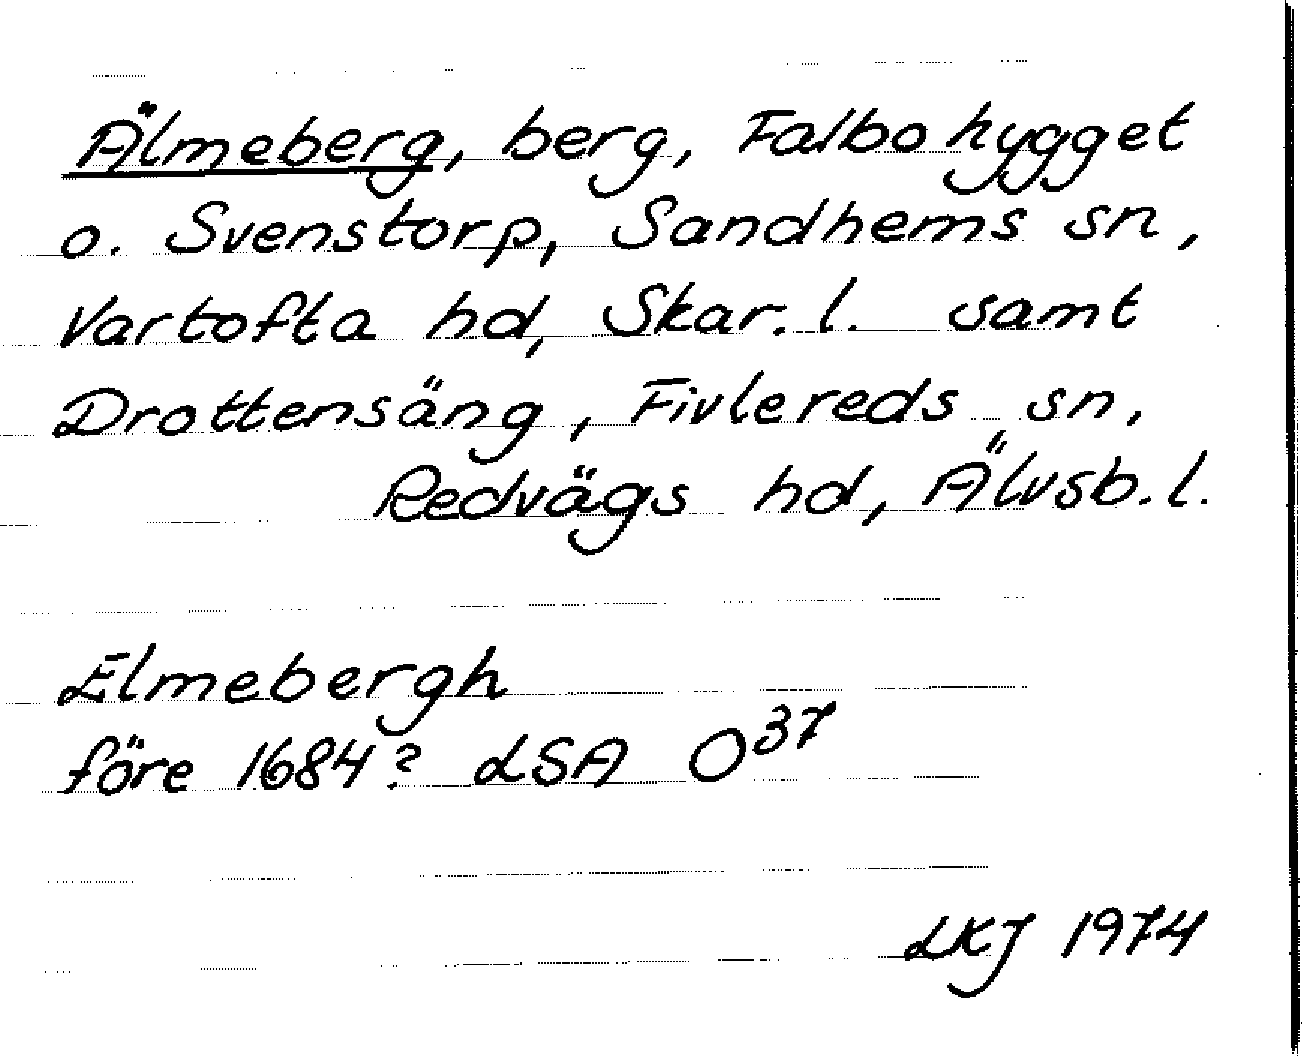 Älmeberg, berg, Falbohygget
o. Svenstorp, Sandhems sn,
Vartofta hd, Skar. l. samt
Drottensäng, Fivlereds sn,
Redvägs hd, Älvsb. l.
Elmebergh
före 1684? LSA O³⁷
LKJ 1974